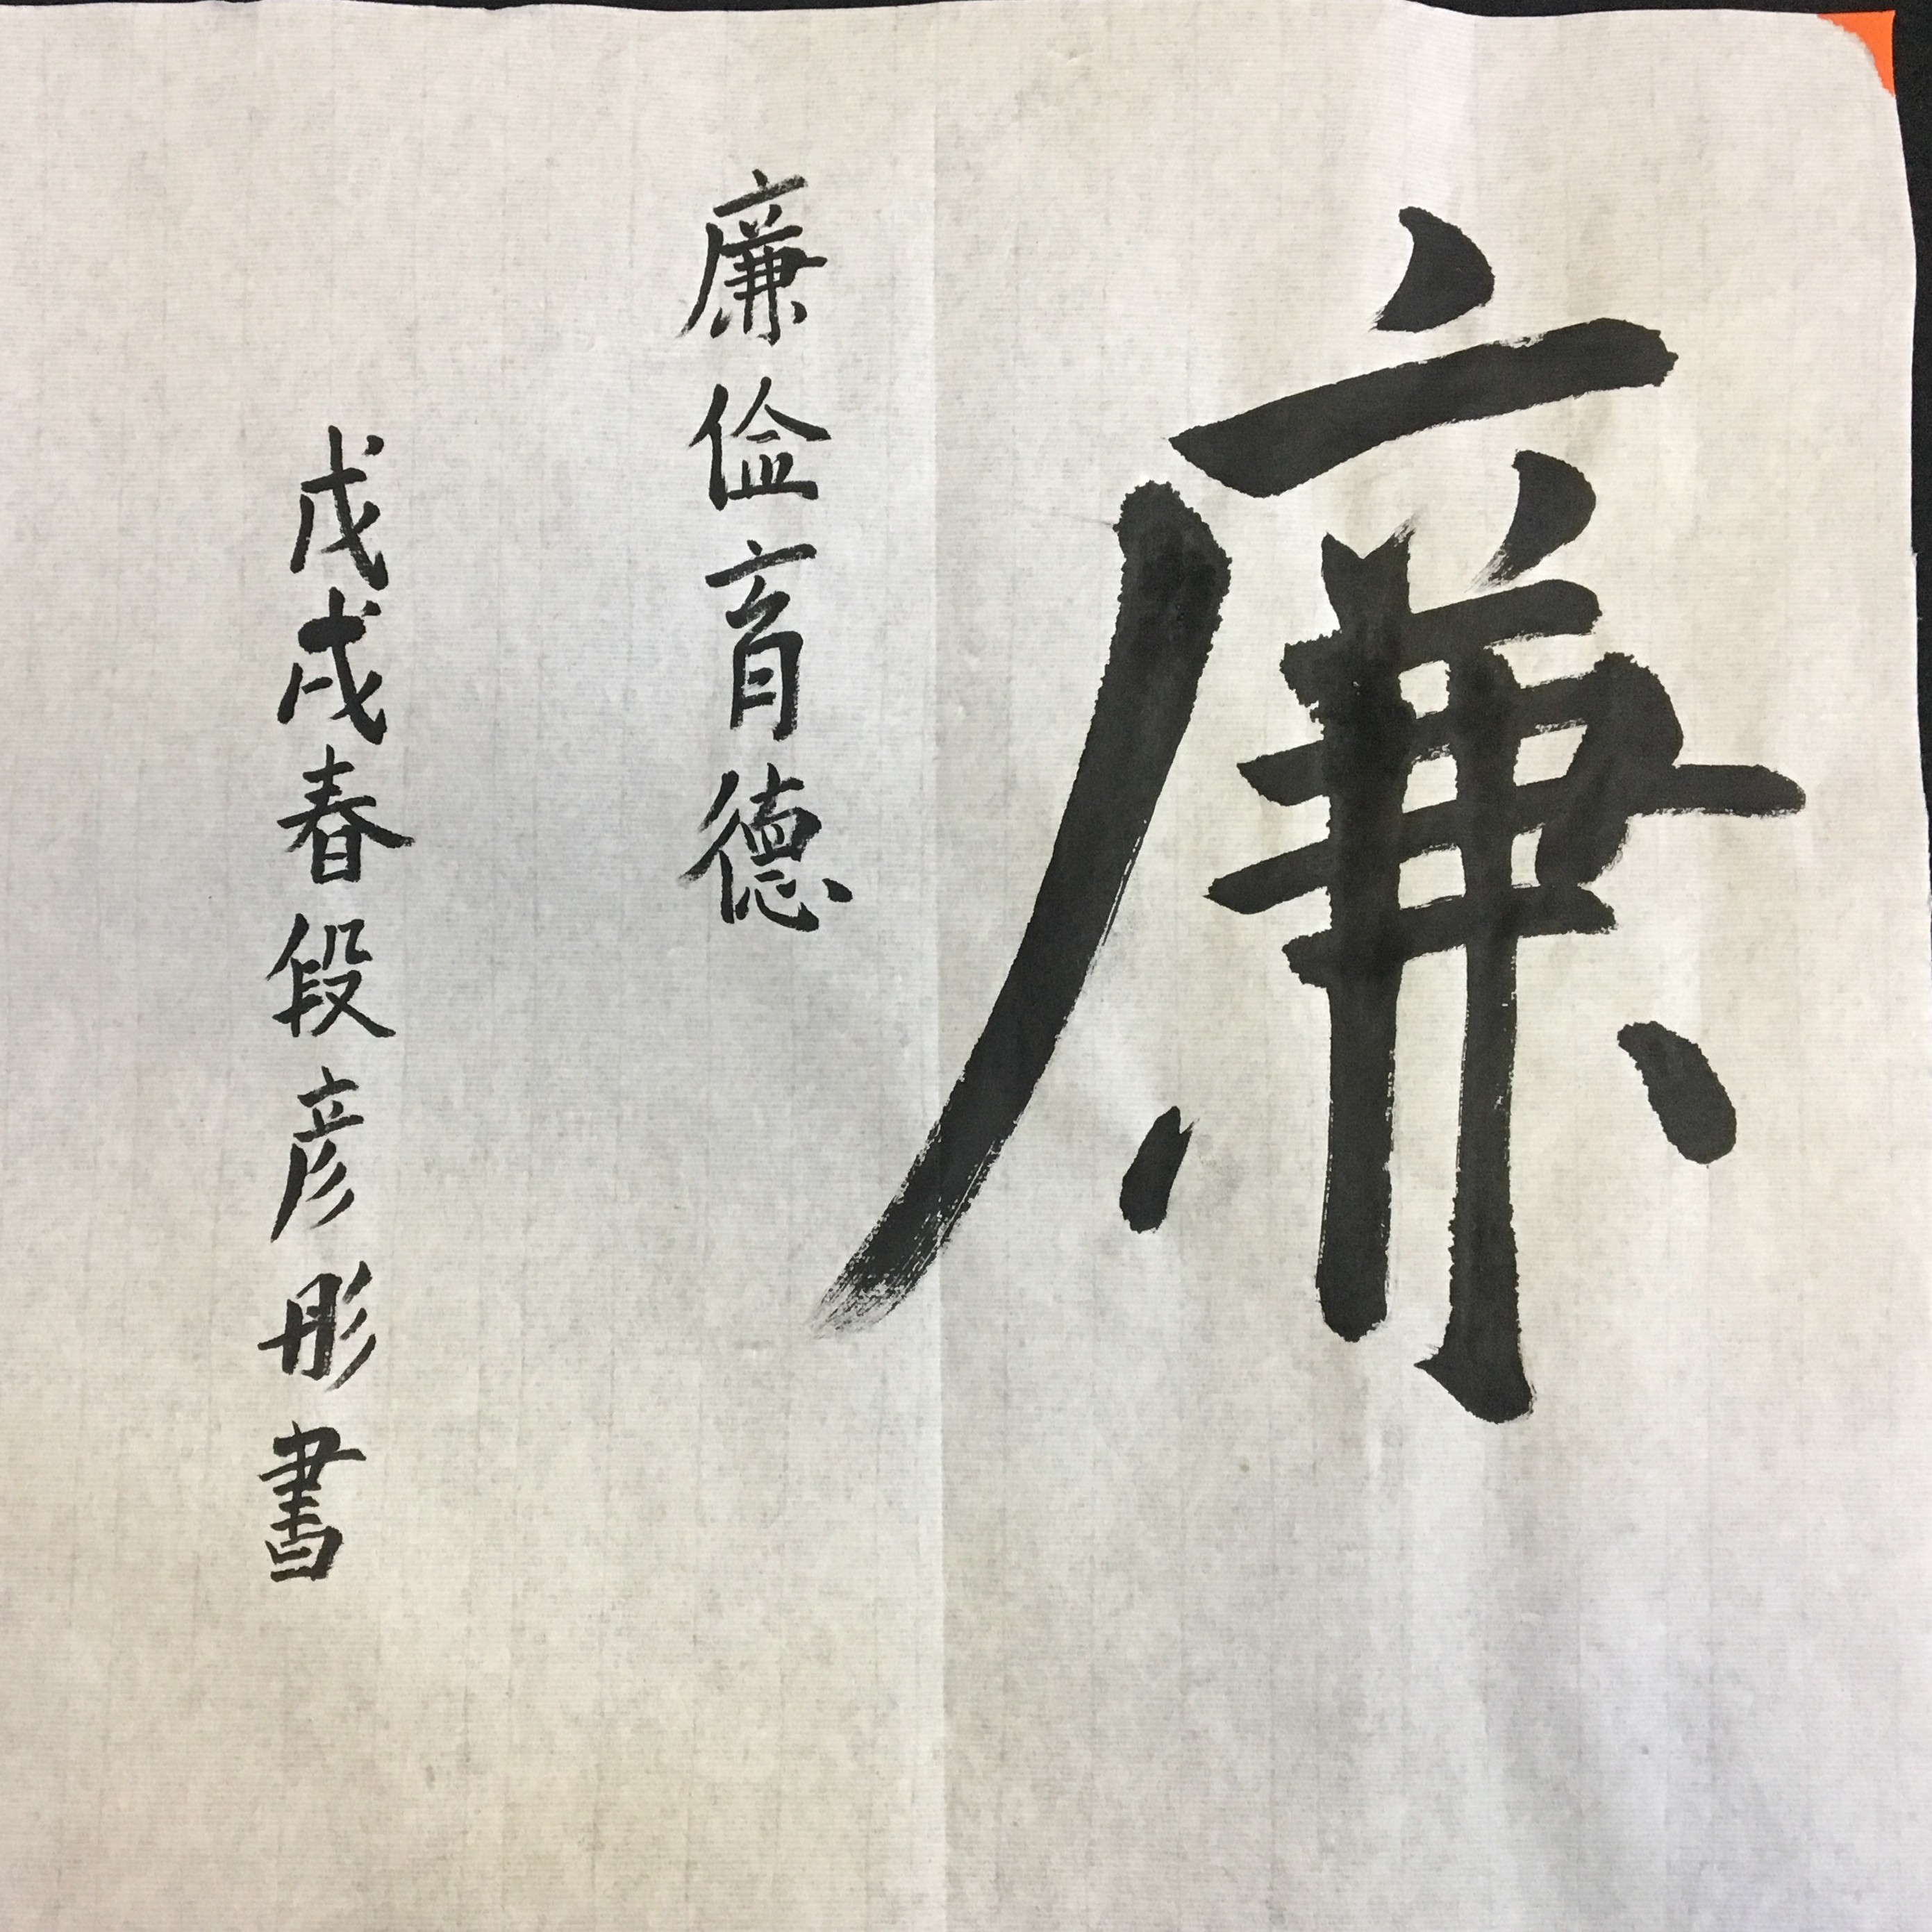 廉
廉儉育德
戊戌春段彦彤書